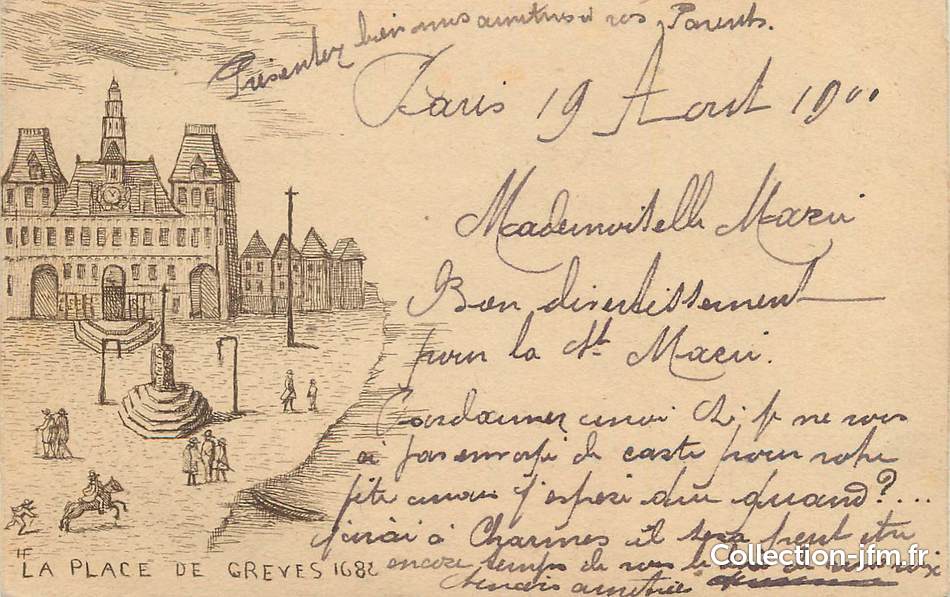 Présentez bien mes amities à vos Parents.
Paris 19 Aout 1900
Mademoiselle Marie
Bon divertissement
pour la St Marie.
Pardonnez moi si je ne vous
ai pas envoyé de carte pour votre
fête mais j'espere que quand?...
j'irai à Charmes il sera peut etre
encore temps de vous
amities
HF
LA PLACE DE GREVES 1682
Collection-jfm.fr